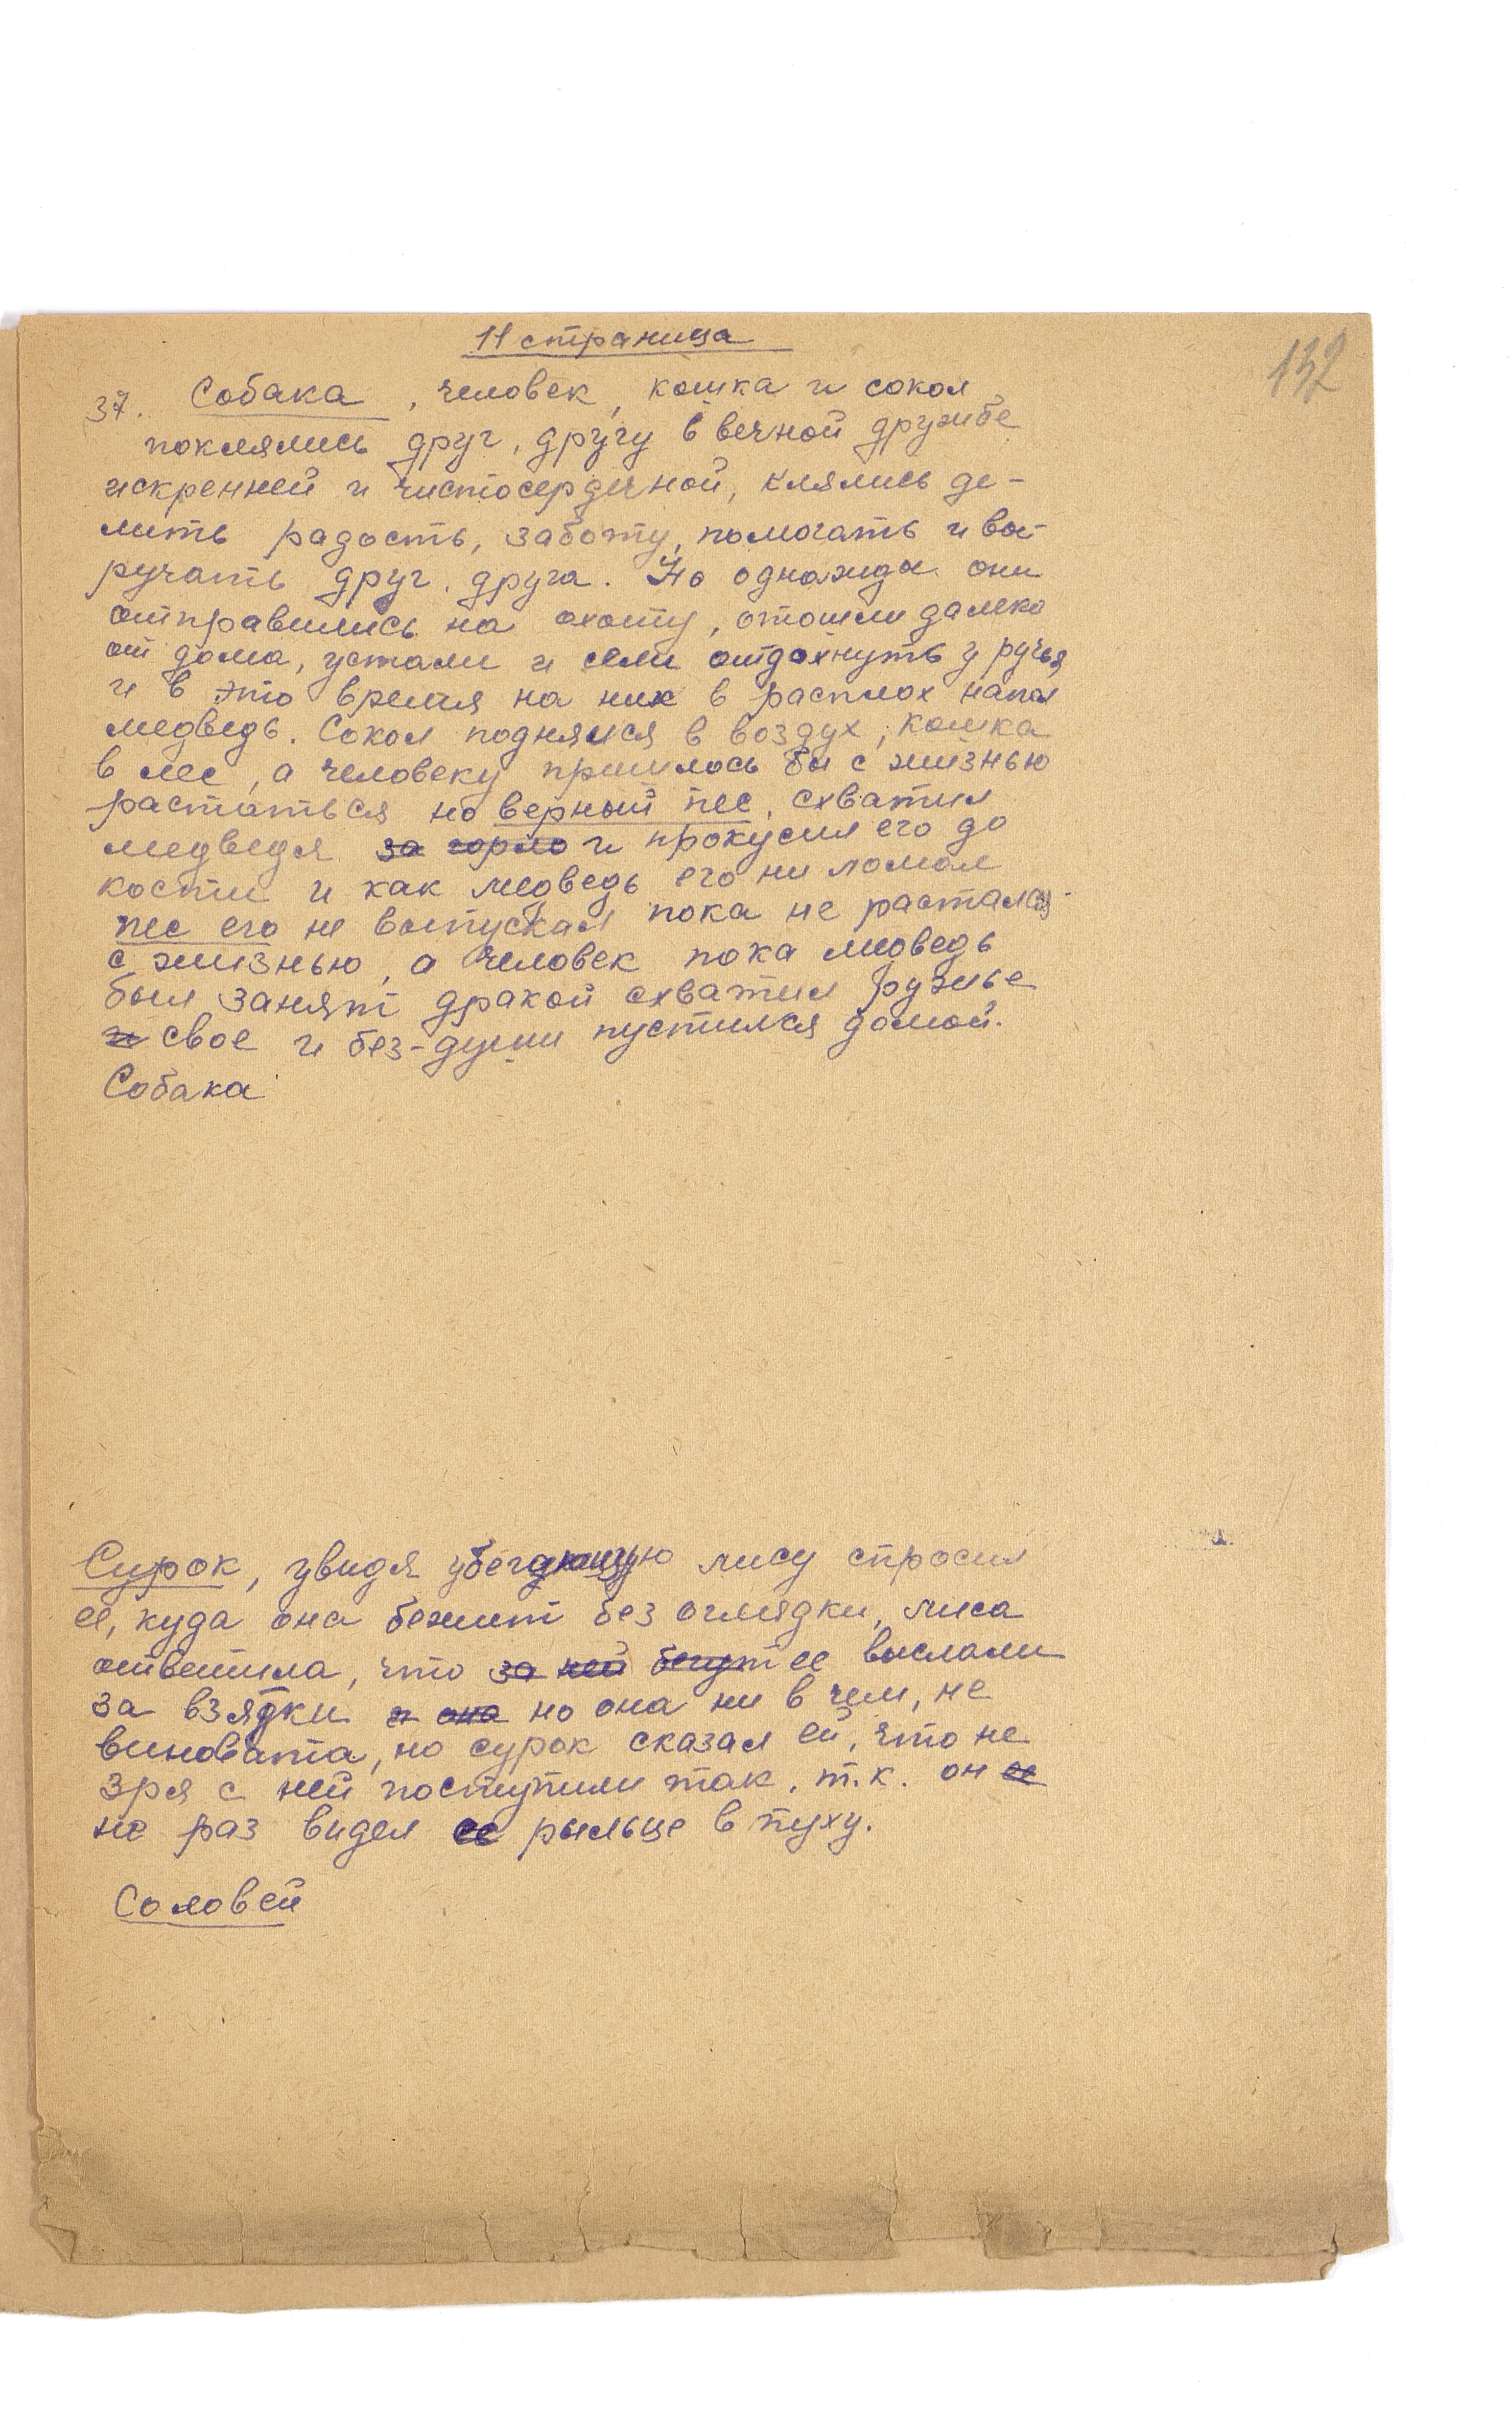 11 страница
132
37. Собака, человек, кошка и сокол
поклялись друг, другу в вечной дружбе
искренней и чистосердечной, клялись де-
лить радость, заботу, помогать и вы-
ручать друг, друга. Но однажды они
отправились на охоту, отошли далеко
от дома, устали и сели отдохнуть у ручья,
и в это время на них в расплох напал
медведь. Сокол поднялся в воздух, кошка
в лес, а человеку пришлось бы с жизнью
растаться но верный пес, схватил
медведя за горло и прокусил его до
кости и как медведь его ни ломал
пес его не выпускал пока не растался
с жизнью, а человек пока медведь
был занят дракой схватил ружье
и свое и без-души пустился домой.
Собака
Сурок, увидя убегающую лису спросил
ее, куда она бежит без оглядки, лиса
ответила, что за ней бегут ее выслали
за взятки и она но она ни в чем, не
виновата, но сурок сказал ей, что не
зря с ней поступили так, т.к. он ее
не раз видел ее рыльце в пуху.
Соловей